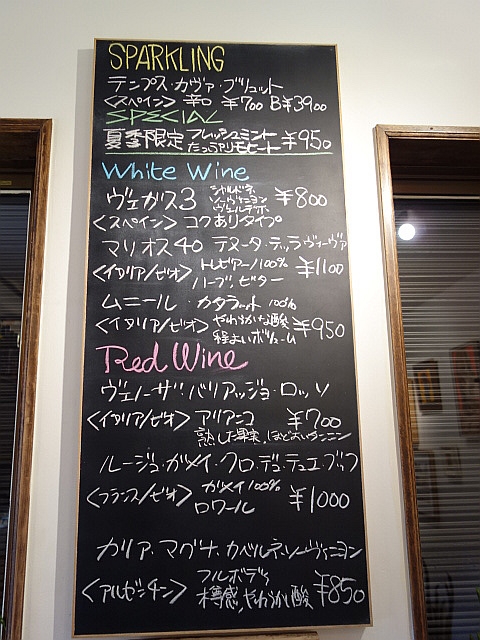 SPARKLING
テンプス・カヴァ・ブリュット
<スペイン> 辛口 ¥700 B¥3900
SPECIAL
夏季限定 フレッシュミント
たっぷりモヒート ¥950
White Wine
ヴェガス3 シャルドネ
ソーヴィニヨン
ヴェルデホ ¥800
<スペイン> コクありタイプ
マリオス40 テヌータ・デッラヴィーヴァ
<イタリア/ビオ> トレビアーノ100% ¥1100
ハーブ、ビター
ムニール・カタラット 100%
<イタリア/ビオ> やわらかな酸 ¥950
程よいボリューム
Red Wine
ヴェノーザ・バリアッジョ・ロッソ
<イタリア/ビオ> アリアニコ ¥700
熟した果実、ほどよいタンニン
ルージュ・ガメイ・クロ・デュ・テュエ・ブッフ
<フランス/ビオ> ガメイ100% ¥1000
ロワール
カリア・マグナ・カベルネ・ソーヴィニヨン
<アルゼンチン> フルボディ ¥850
樽感、やわらかい酸